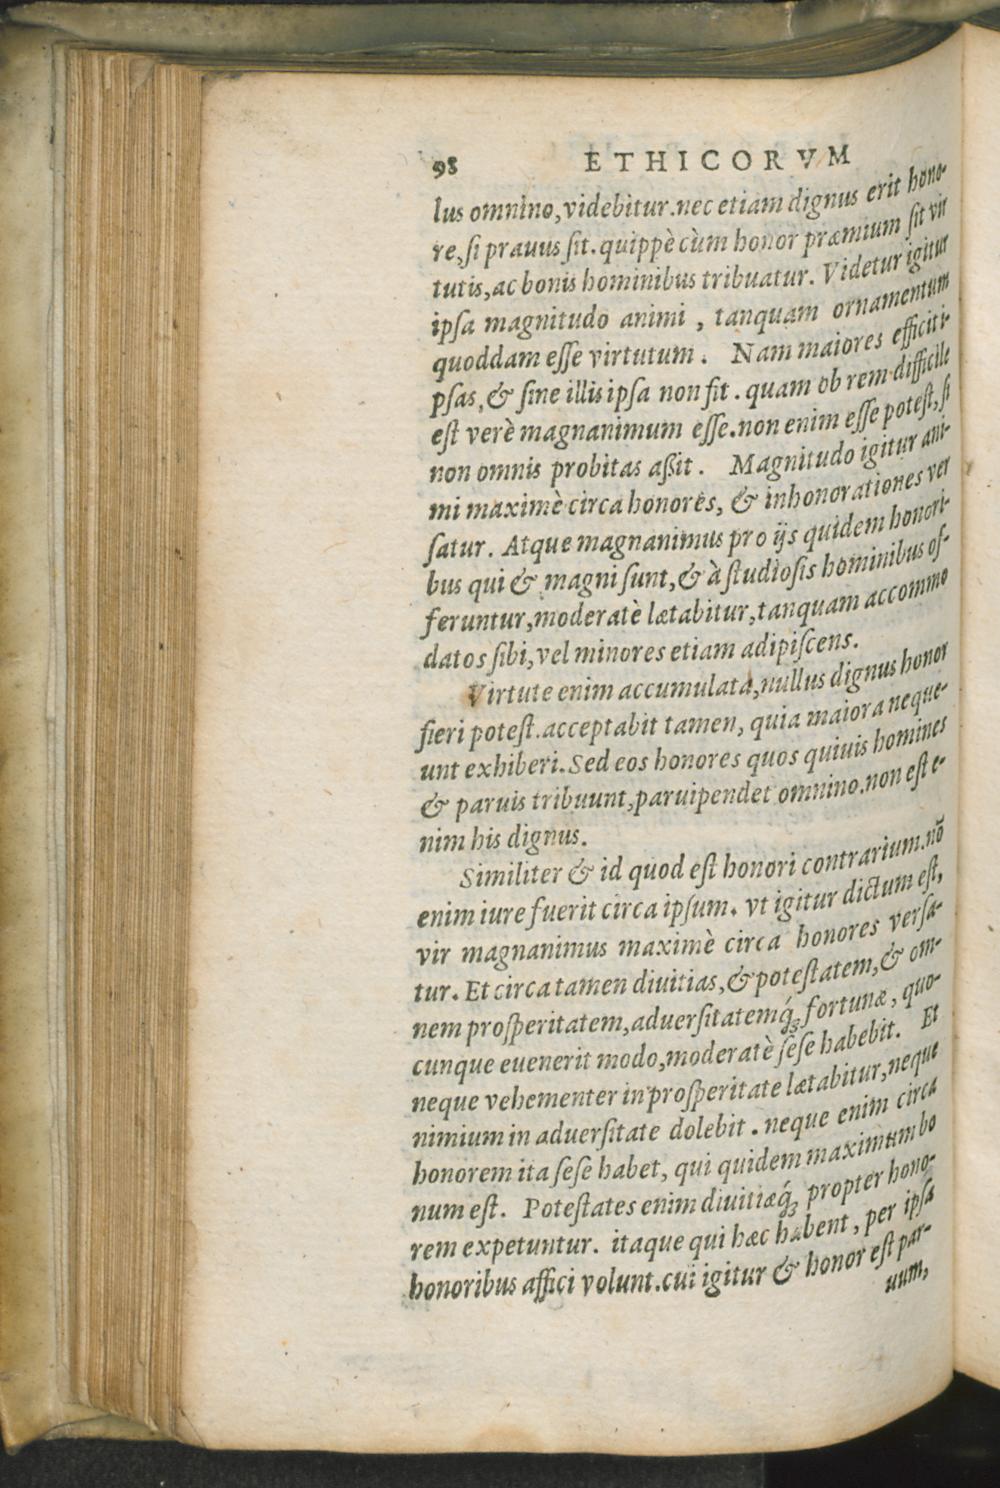 98 ETHICORVM
lus omnino, videbitur. nec etiam dignus erit hono-
re, si prauus sit. quippè cùm honor præmium sit vir
tutis, ac bonis hominibus tribuatur. Videtur igitur
ipsa magnitudo animi, tanquam ornamentum
quoddam esse virtutum. Nam maiores efficit i-
psas, & sine illis ipsa non fit. quam ob rem difficile
est verè magnanimum esse. non enim esse potest, si
non omnis probitas aßit. Magnitudo igitur ani-
mi maximè circa honores, & inhonorationes ver
satur. Atque magnanimus pro ijs quidem honori-
bus qui & magni sunt, & à studiosis hominibus of-
feruntur, moderatè lætabitur, tanquam accommo
datos sibi, vel minores etiam adipiscens.
Virtute enim accumulata, nullus dignus honor
fieri potest. acceptabit tamen, quia maiora neque-
unt exhiberi. Sed eos honores quos quiuis homines
& paruis tribuunt, paruipendet omnino. non est e-
nim his dignus.
Similiter & id quod est honori contrarium. nō
enim iure fuerit circa ipsum. vt igitur dictum est,
vir magnanimus maximè circa honores versa-
tur. Et circa tamen diuitias, & potestatem, & om-
nem prosperitatem, aduersitatemq́ꝫ fortunæ, quo-
cunque euenerit modo, moderatè sèse habebit. Et
neque vehementer in prosperitate lætabitur, neque
nimium in aduersitate dolebit. neque enim circa
honorem ita sese habet, qui quidem maximum bo
num est. Potestates enim diuitiæq́ꝫ propter hono-
rem expetuntur. itaque qui hæc habent, per ipsa
honoribus affici volunt. cui igitur & honor est par-
uum,